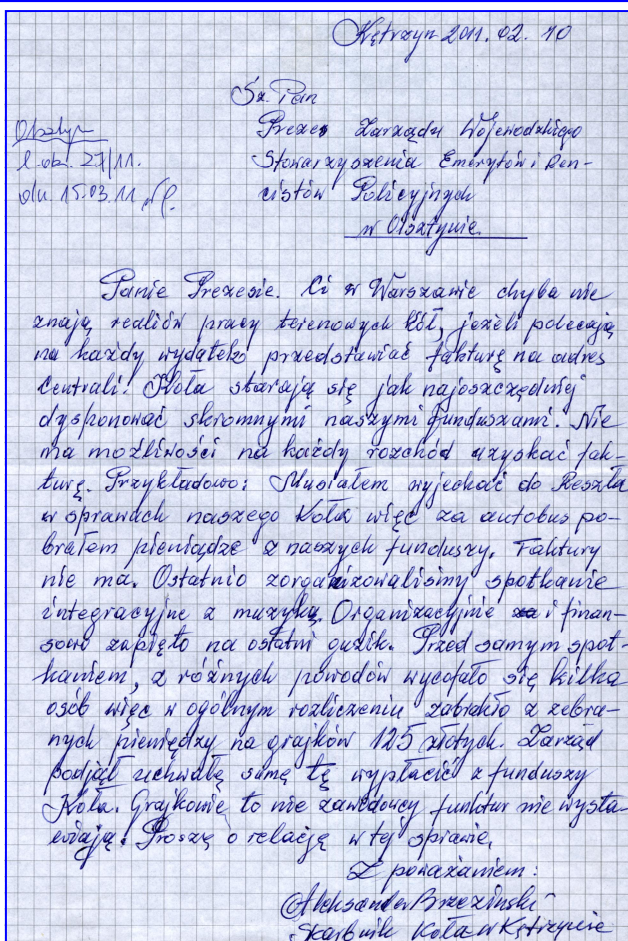 Kętrzyn 2011. 02. 10
Sz. Pan
Prezes Zarządu Wojewódzkiego
Stowarzyszenia Emerytów i Ren-
cistów Policyjnych
w Olsztynie
Olsztyn
l.dz. 27/11.
dn. 15.03.11
Panie Prezesie. Ci w Warszawie chyba nie
znają realiów pracy terenowych kół, jeżeli polecają
na każdy wydatek przedstawiać fakturę na adres
Centrali. Koła starają się jak najoszczędniej
dysponować skromnymi naszymi funduszami. Nie
ma możliwości na każdy rozchód uzyskać fak-
turę. Przykładowo: Musiałem wyjechać do Reszla
w sprawach naszego Koła więc za autobus po-
brałem pieniądze z naszych funduszy. Faktury
nie ma. Ostatnio zorganizowaliśmy spotkanie
integracyjne z muzyką. Organizacyjnie i finan-
sowo zapięto na ostatni guzik. Przed samym spot-
kaniem, z różnych powodów wycofało się kilka
osób więc w ogólnym rozliczeniu zabrakło z zebra-
nych pieniędzy na grajków 125 złotych. Zarząd
podjął uchwałę sumę tę wypłacić z funduszy
Koła. Grajkowie to nie zawodowcy funktur nie wysta-
wiają. Proszę o relację w tej sprawie.
Z poważaniem:
Aleksander Brzeziński
Skarbnik Koła w Kętrzynie